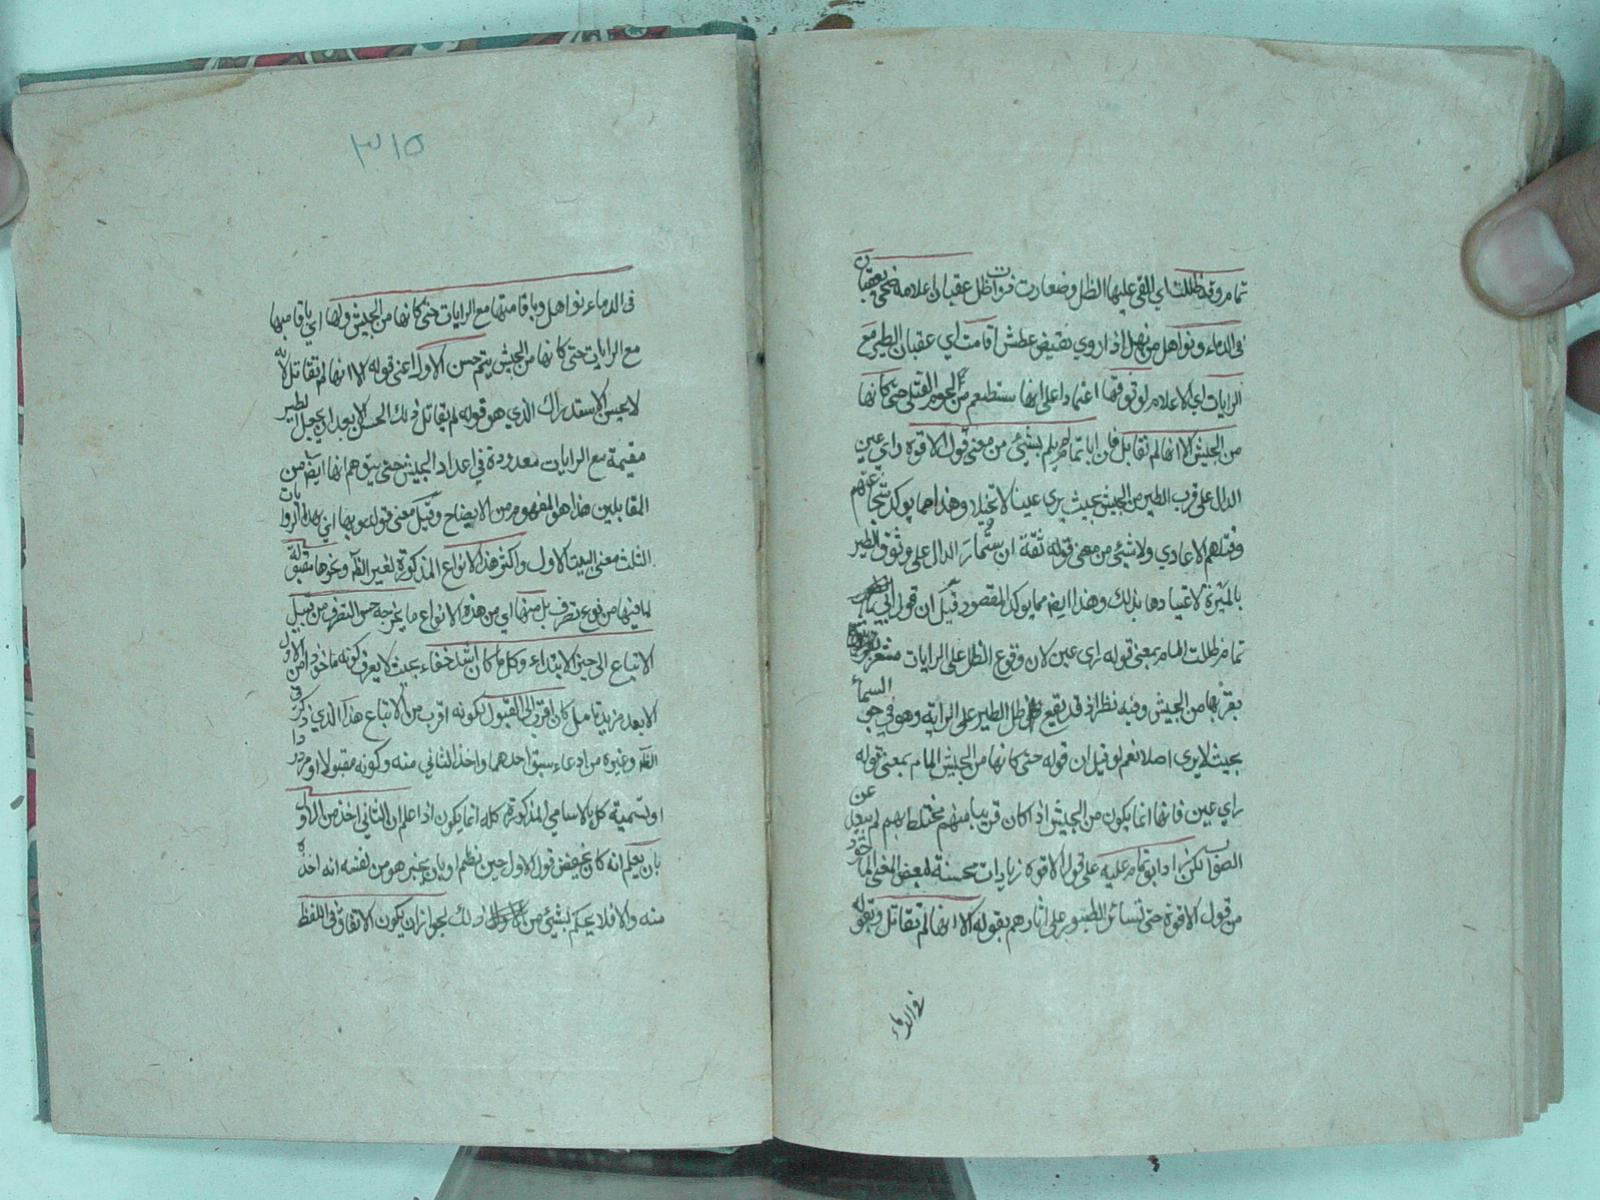 تمام وقد ظللت اي القي عليها الظل وضعا رت فوات ظل عقبان اعلامه ضحي بعقبان
في الدماء ونواهل من نهل اذا روي نقيض عطش اقامت اي عقبان الطير مع
الرايات اي الاعلام لوثوقها اعتمادا على انها ستطعم من لحوم القتلى حتى كانها
من الجيش الا انها لم تقاتل فان ابا تمام لم يلم بشيئ من معنى قول الافوه راي عين
الدال على قرب الطير من الجيش بحيث يرى عينا لا تخيلا وهذا مما يوكد شجاعتهم
وقتلهم الاعادي ولا بشيئ من معنى قوله ثقة ان ستمار الدال على وثوق الطير
بالميرة لاعتيادها بذلك وهذا ايضا مما يوكد المقصود قيل ان قول ابي
تمام ظللت المام بمعنى قوله راي عين لان وقوع الظل على الرايات مشعر
بقربها من الجيش وفيه نظر اذ قد يقع ظل الطير على الراية وهو في جو السماء
بحيث لا يرى اصلا نعم لو قيل ان قوله حتى كانها من الجيش المام بمعنى قوله
راي عين فانها انما يكون من الجيش اذا كان قريبا منهم مختلطا بهم لم يبعد عن
الصواب لكن زاد ابو تمام عليه على قول الافوه زيادات محسنة لبعض المعنى الماخوذ
من قول الافوه حتى تساير الطيور على اثارهم بقوله الا انها لم تقاتل وبقوله
في الدماء
٣١٥
في الدماء نواهل وباقامتها مع الرايات حتى كانها من الجيش وبها اي باقامتها
مع الرايات حتى كانها من الجيش يتم حسن الاول اعني قوله الا انها لم تقاتل لانه
لا يحسن الاستدراك الذي هو قوله لم يقاتل ذلك الحسن الا بعد ان يجعل الطير
مقيمة مع الرايات معدودة في اعداد الجيش حتى يتوهم انها ايضا من
المقاتلين هذا هو المفهوم من الايضاح وقيل معنى قوله وبها اي بهذه الزوايات
الثلث معنى البيت الاول واكثر هذه الانواع المذكورة لغير الظاهر ونحوها مقبولة
لما فيها من نوع تصرف بل منها اي من هذه الانواع ما يخرجه حسن التصرف من قبيل
الاتباع الى حيز الابتداء وكل ما كان اشد خفاء بحيث لا يعرف كونه ماخوذا من الاول
الا بعد مزيد تامل كان اقرب الى القبول لكونه اقرب من الاتباع هذا الذي ذكر في
الظاهر وغيره من ادعاء سبق احدهما واخذ الثاني منه وكونه مقبولا او مردودا
او تسمية كل بالاسامي المذكورة كله انما يكون اذا علم ان الثاني اخذ من الاول
بان يعلم انه كان يحفظ قول الاول حين نظم او بان يخبر هو من نفسه انه اخذه
منه والا فلا يحكم بشيئ من ذلك لجواز ان يكون الاتفاق في اللفظ